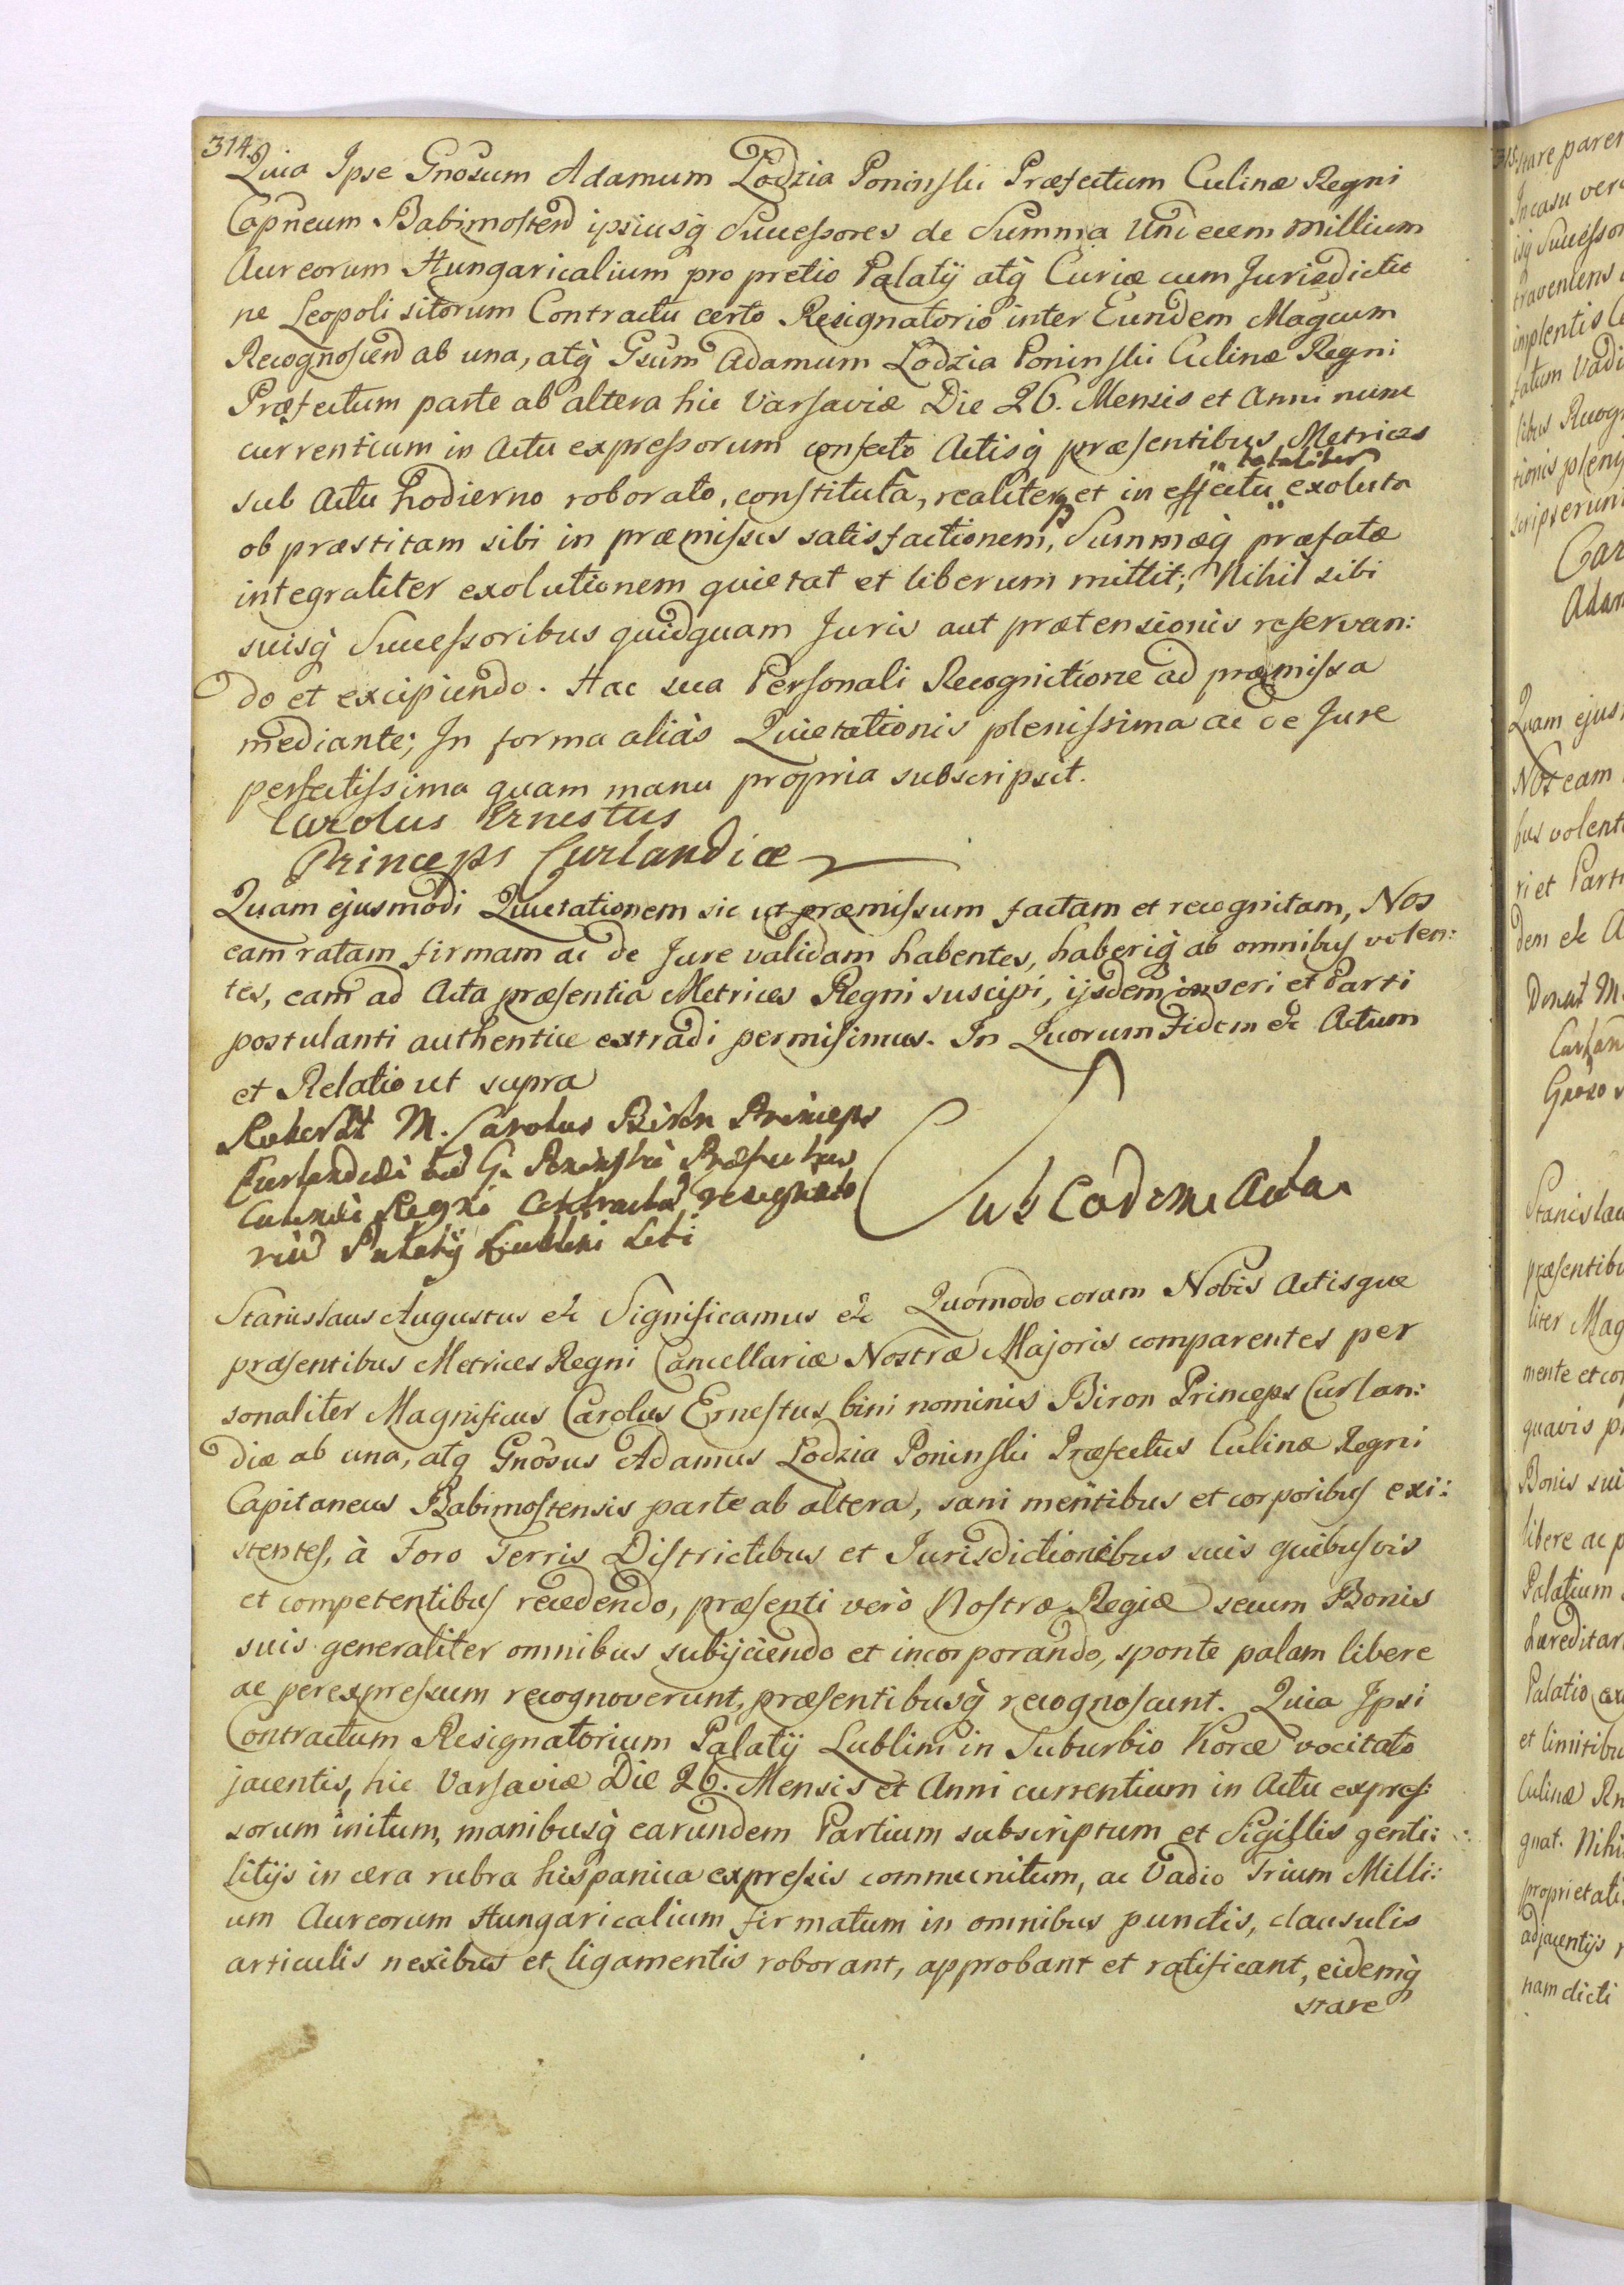 314.
Quia Ipse Gnosum Adamum Łodzia Poninski Præfectum Culinæ Regni
Capneum Babimosten ipsiusq̀ Successores de Summa Undecem millium
Aureorum Hungaricalium pro pretio Palatij atq̀ Curiæ cum Jurisdictio
ne Leopoli sitorum Contractu certo Resignatorio inter Eundem Magcum
Recognoscen ab una, atq̀ Gsum Adamum Lodzia Poninski Culinæ Regni
Præfectum parte ab altera hic Varsaviæ Die 26. Mensis et Anni nunc
currentium in Actu expressorum confecto Actisq̀ præsentibus Metrices
sub Actu hodierno roborato, constitutâ, realiter et in effectu totaliter exoluta
ob præstitam sibi in præmissis satisfactionem, Summæq̀ præfatæ
integraliter exolutionem quietat et liberum mittit; Nihil sibi
suisq̀ Successoribus quidquam Juris aut prætensionis reservan:
do et excipiendo. Hac sua Personali Recognitione ad præmissa
mediante; In forma aliàs Quietationis plenissima ac de Jure
perfectissima quam manu propria subscripsit.
Carolus Ernestus
Princeps Curlandiæ
Quam ejusmodi Quietationem sic ut præmissum factam et recognitam, Nos
eam ratam firmam ac de Jure validam habentes, haberiq̀ ab omnibus volen:
tes, eam ad Acta præsentia Metrices Regni suscipi, ijsdem inseri et Parti
postulanti authentice extradi permisimus. In Quorum Fidem &c Actum
et Relatio ut supra
M. Carolus Biron Princeps
G. Poninski Præfectus
Culinæ Regni Contractus resignato
Palatij Lublini
Sub Eodem Actu.
Stanislaus Augustus &c Significamus &c Quomodo coram Nobis Actisque
præsentibus Metrices Regni Cancellariæ Nostræ Majoris comparentes per
sonaliter Magnificus Carolus Ernestus bini nominis Biron Princeps Curlan:
diæ ab una, atq Gnosus Adamus Lodzia Poninski Præfectus Culinæ Regni
Capitaneus Babimostensis parte ab altera, sani mentibus et corporibus exi:
stentes, à Foro Terris Districtibus et Jurisdictionibus suis quibusvis
et competentibus recedendo, præsenti verò Nostræ Regiæ secum Bonis
suis generaliter omnibus subijciendo et incorporando, sponte palam libere
ac per expressum recognoverunt, præsentibusq̀ recognoscunt. Quia Ipsi
Contractum Resignatorium Palatij Lublini in Suburbio Korce vocitato
jacentis, hic Varsaviæ Die 26. Mensis et Anni currentium in Actu expres:
sorum initum, manibusq̀ earundem Partium subscriptum et Sigillis genti:
litijs in cera rubra hispanica expressis communitum, ac Vadio Trium Milli:
um Aureorum Hungaricalium firmatum in omnibus punctis, clausulis
articulis nexibus et ligamentis roborant, approbant et ratificant, eidemq̀
stare